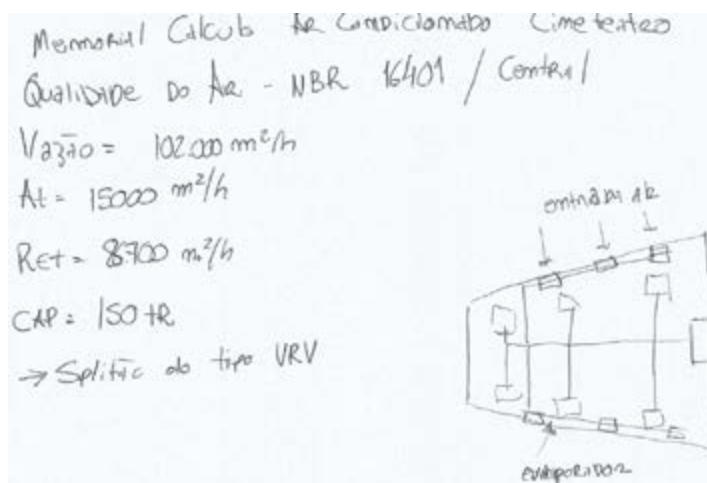 Memorial Cálculo Ar Condicionado Cineteatro
Qualidade Do Ar - NBR 16401 / Central
Vazão = 102.000 m²/h
At = 15000 m²/h
Ret = 8700 m²/h
CAP = 150 TR
→ Splitão do tipo VRV
entrada ar
evaporador